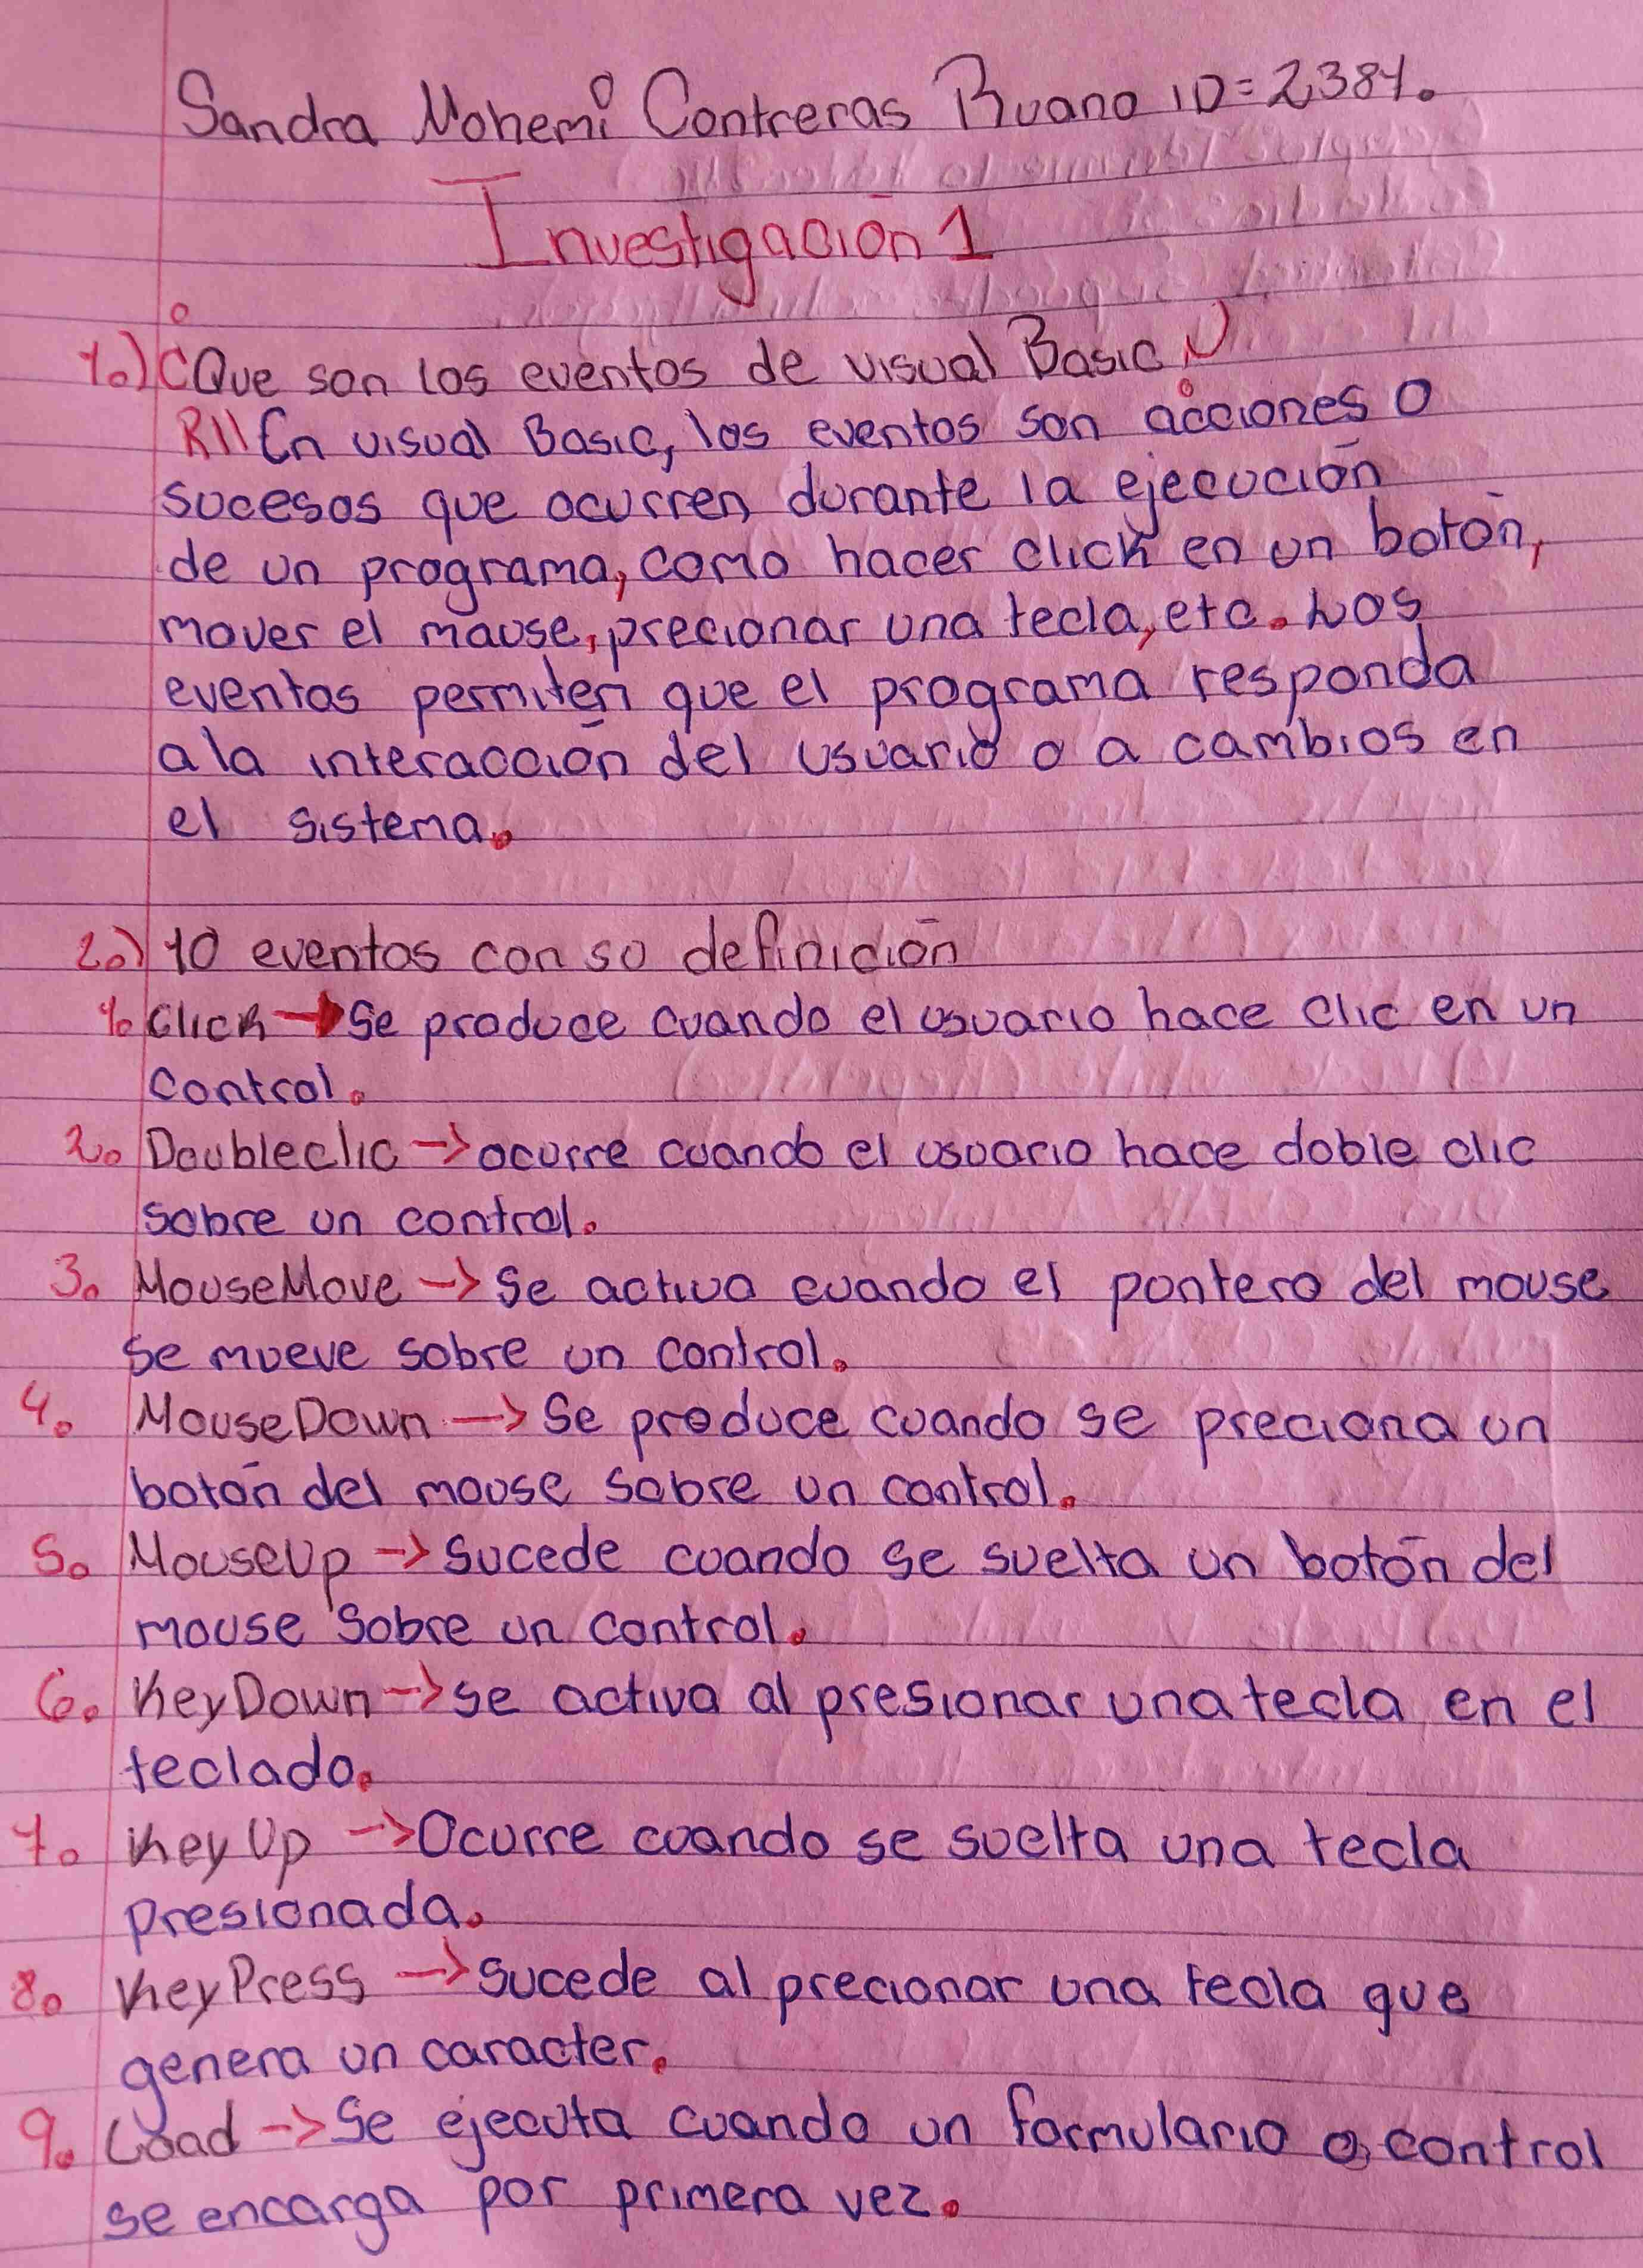 Sandra Nohemí Contreras Ruano ID=2384.
Investigación 1
1.) ¿Que son los eventos de visual Basic?
R// En visual Basic, los eventos son acciones o
sucesos que ocurren durante la ejecución
de un programa, como hacer click en un botón,
mover el mause, precionar una tecla, etc. Los
eventos permiten que el programa responda
ala interacción del usuario o a cambios en
el sistema.
2.) 10 eventos con su definición
1. Click → Se produce cuando el usuario hace clic en un
control.
2. Doubleclic → ocurre cuando el usuario hace doble clic
sobre un control.
3. MouseMove → Se activa cuando el pontero del mouse
se mueve sobre un control.
4. MouseDown → Se produce cuando se preciona un
botón del mouse sobre un control.
5. MouseUp → Sucede cuando se suelta un botón del
mouse sobre un control.
6. KeyDown → se activa al presionar una tecla en el
teclado.
7. Key Up → Ocurre cuando se suelta una tecla
presionada.
8. KeyPress → Sucede al precionar una tecla que
genera un caracter.
9. Load → Se ejecuta cuando un formulario o control
se encarga por primera vez.